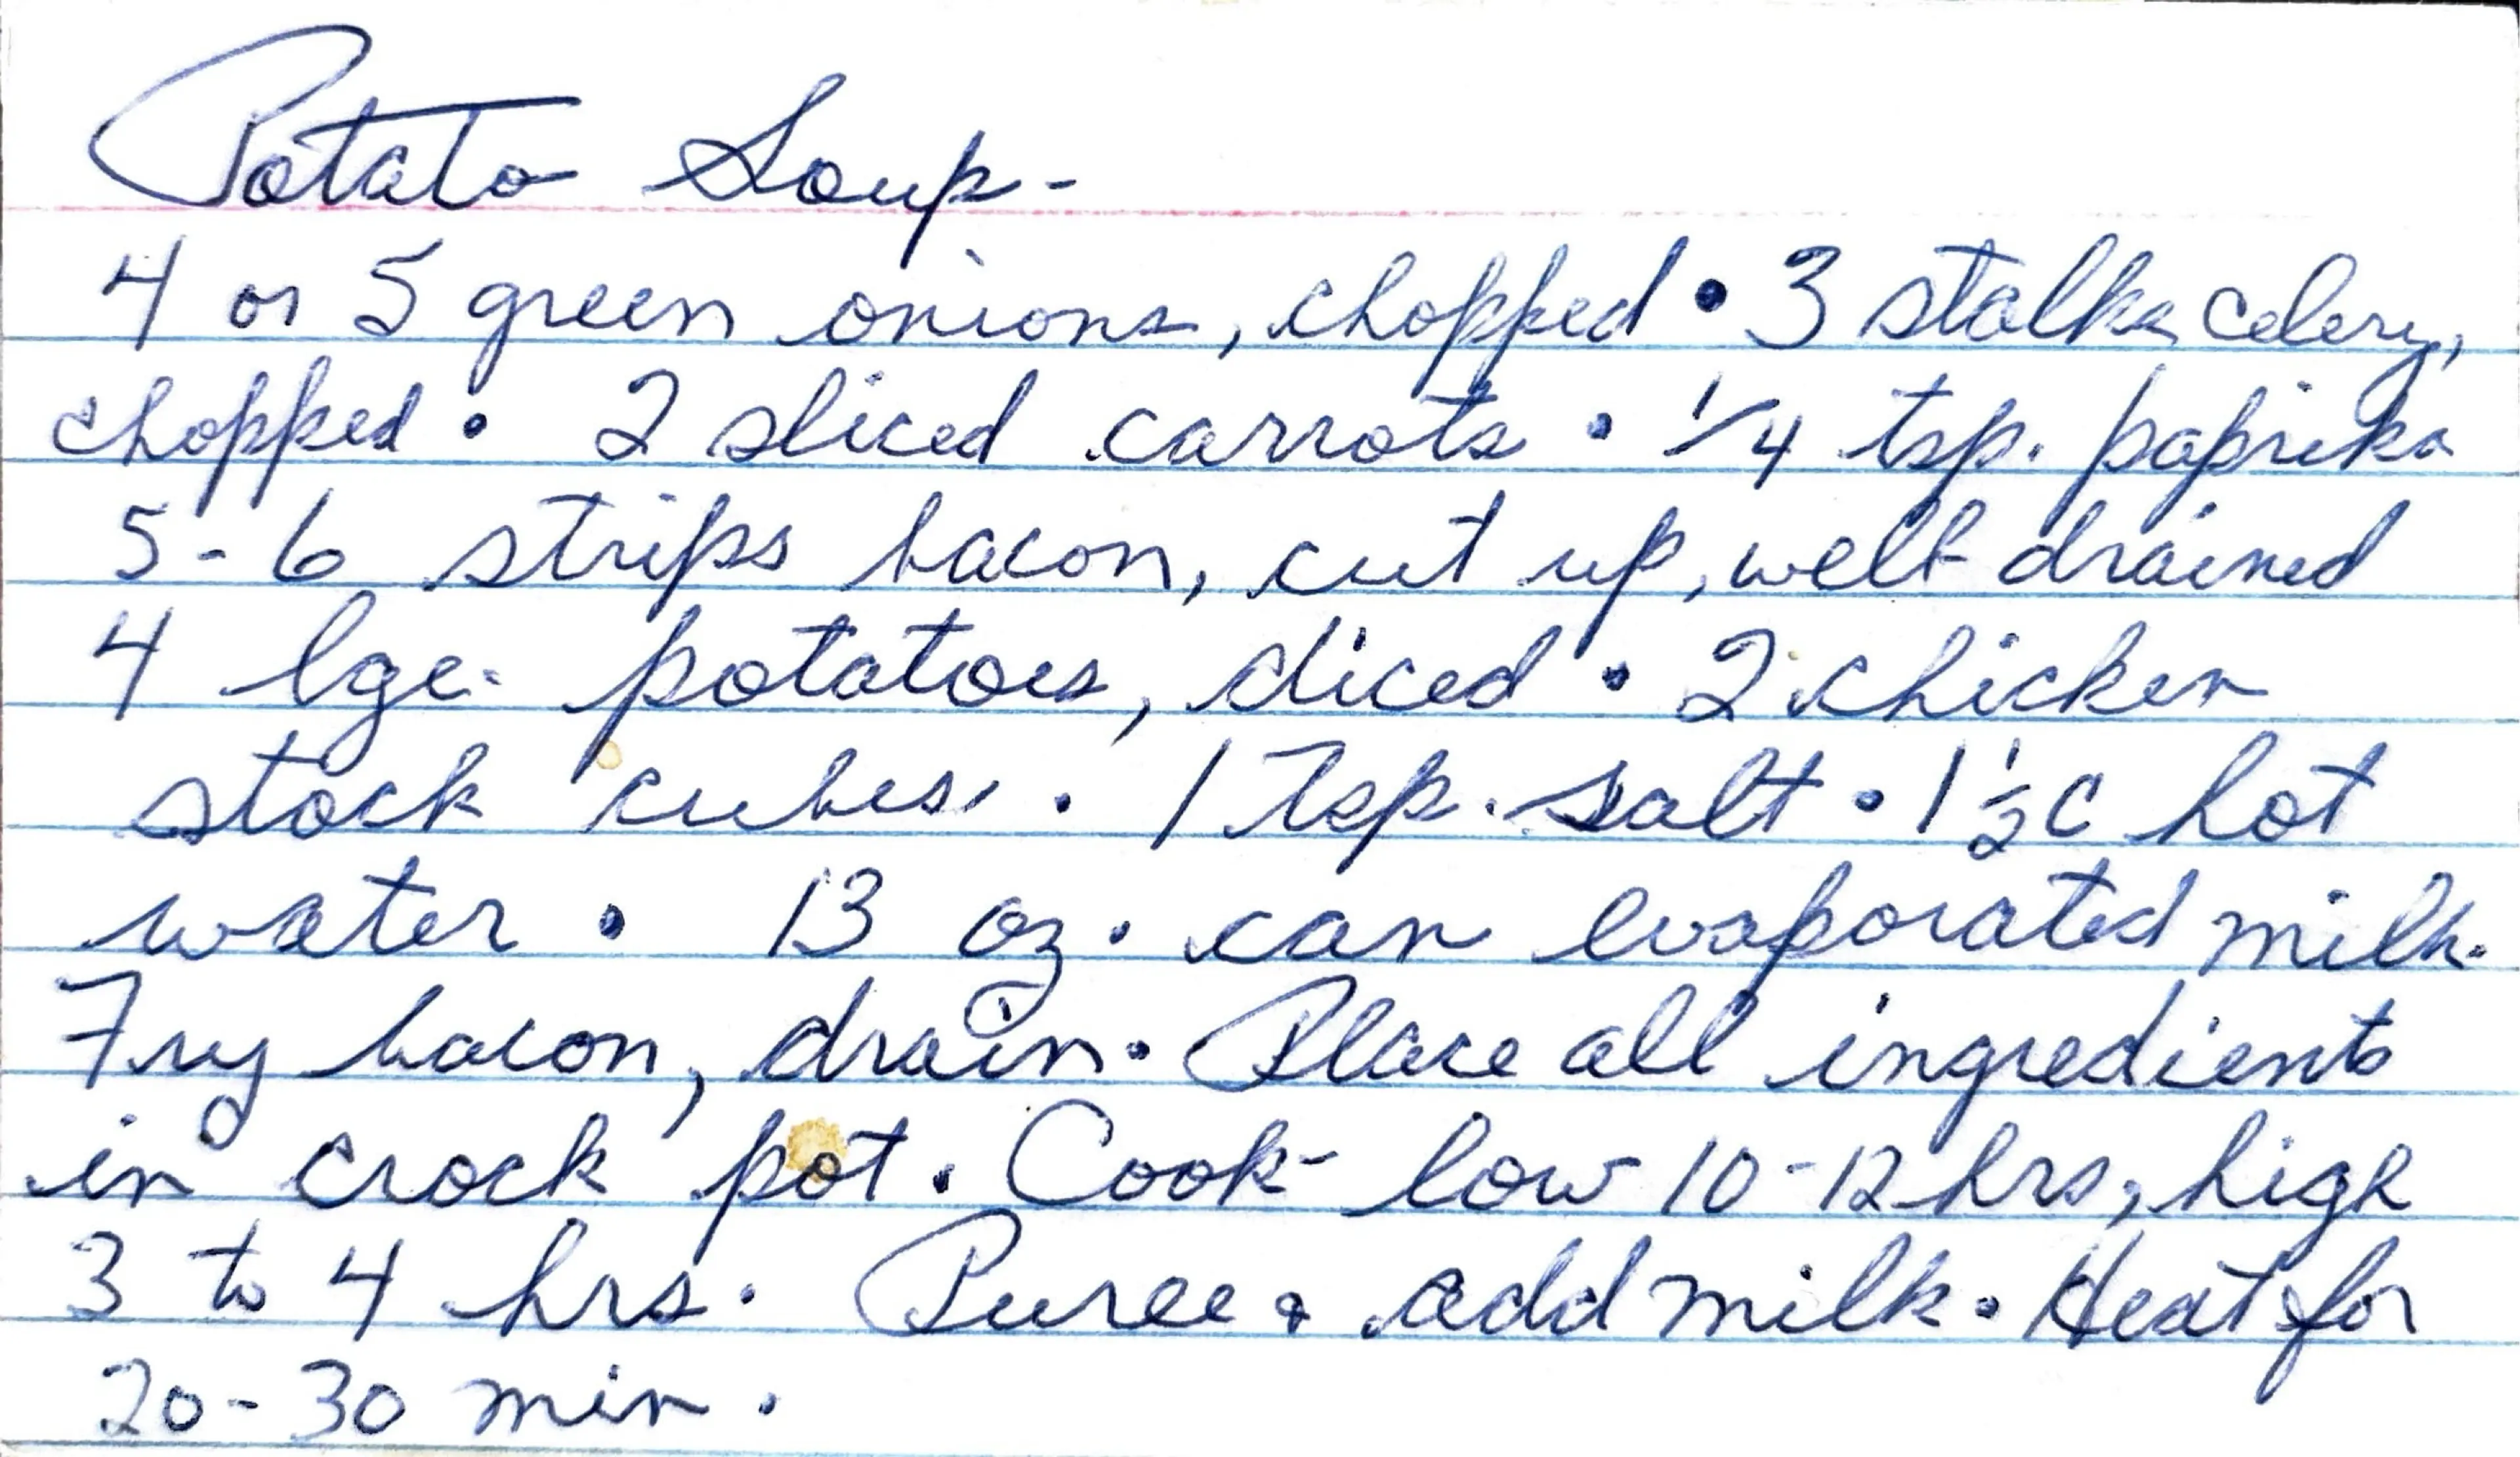 Potato Soup -
4 or 5 green onions, chopped • 3 stalks celery,
chopped • 2 sliced carrots • 1/4 tsp. paprika
5-6 strips bacon, cut up, well drained
4 lge. potatoes, diced • 2 chicken
stock cubes • 1 Tsp. salt • 1 1/2 C hot
water • 13 oz. can evaporated milk.
Fry bacon, drain. Place all ingredients
in crock pot. Cook - low 10-12 hrs, high
3 to 4 hrs. Puree & add milk. Heat for
20-30 min.